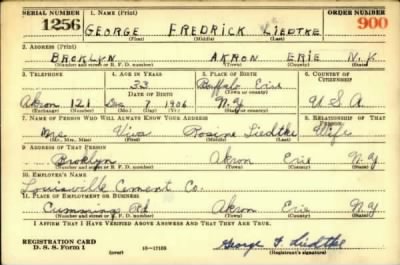 SERIAL NUMBER 1. NAME (Print) ORDER NUMBER
1256 GEORGE FREDRICK LIEDTKE 900
(First) (Middle) (Last)
2. ADDRESS (Print)
BROKLYN AKRON ERIE N.Y.
(Number and street or R. F. D. number) (Town) (County) (State)
3. TELEPHONE 4. AGE IN YEARS 5. PLACE OF BIRTH 6. COUNTRY OF CITIZENSHIP
33 Buffalo Erie
DATE OF BIRTH (Town or county)
Akron 121 Dec 7 1906 N.Y. U.S.A.
(Exchange) (Number) (Mo.) (Day) (Yr.) (State or country)
7. NAME OF PERSON WHO WILL ALWAYS KNOW YOUR ADDRESS 8. RELATIONSHIP OF THAT PERSON
Mrs. Rosine Liedtke Wife
(Mr., Mrs., Miss) (First) (Middle) (Last)
9. ADDRESS OF THAT PERSON
Broklyn Akron Erie N.Y.
(Number and street or R. F. D. number) (Town) (County) (State)
10. EMPLOYER'S NAME
Louisville Cement Co.
11. PLACE OF EMPLOYMENT OR BUSINESS
Cummings Rd Akron Erie N.Y.
(Number and street or R. F. D. number) (Town) (County) (State)
I AFFIRM THAT I HAVE VERIFIED ABOVE ANSWERS AND THAT THEY ARE TRUE.
REGISTRATION CARD
D. S. S. Form 1 (over) George F. Liedtke
(Registrant's signature)